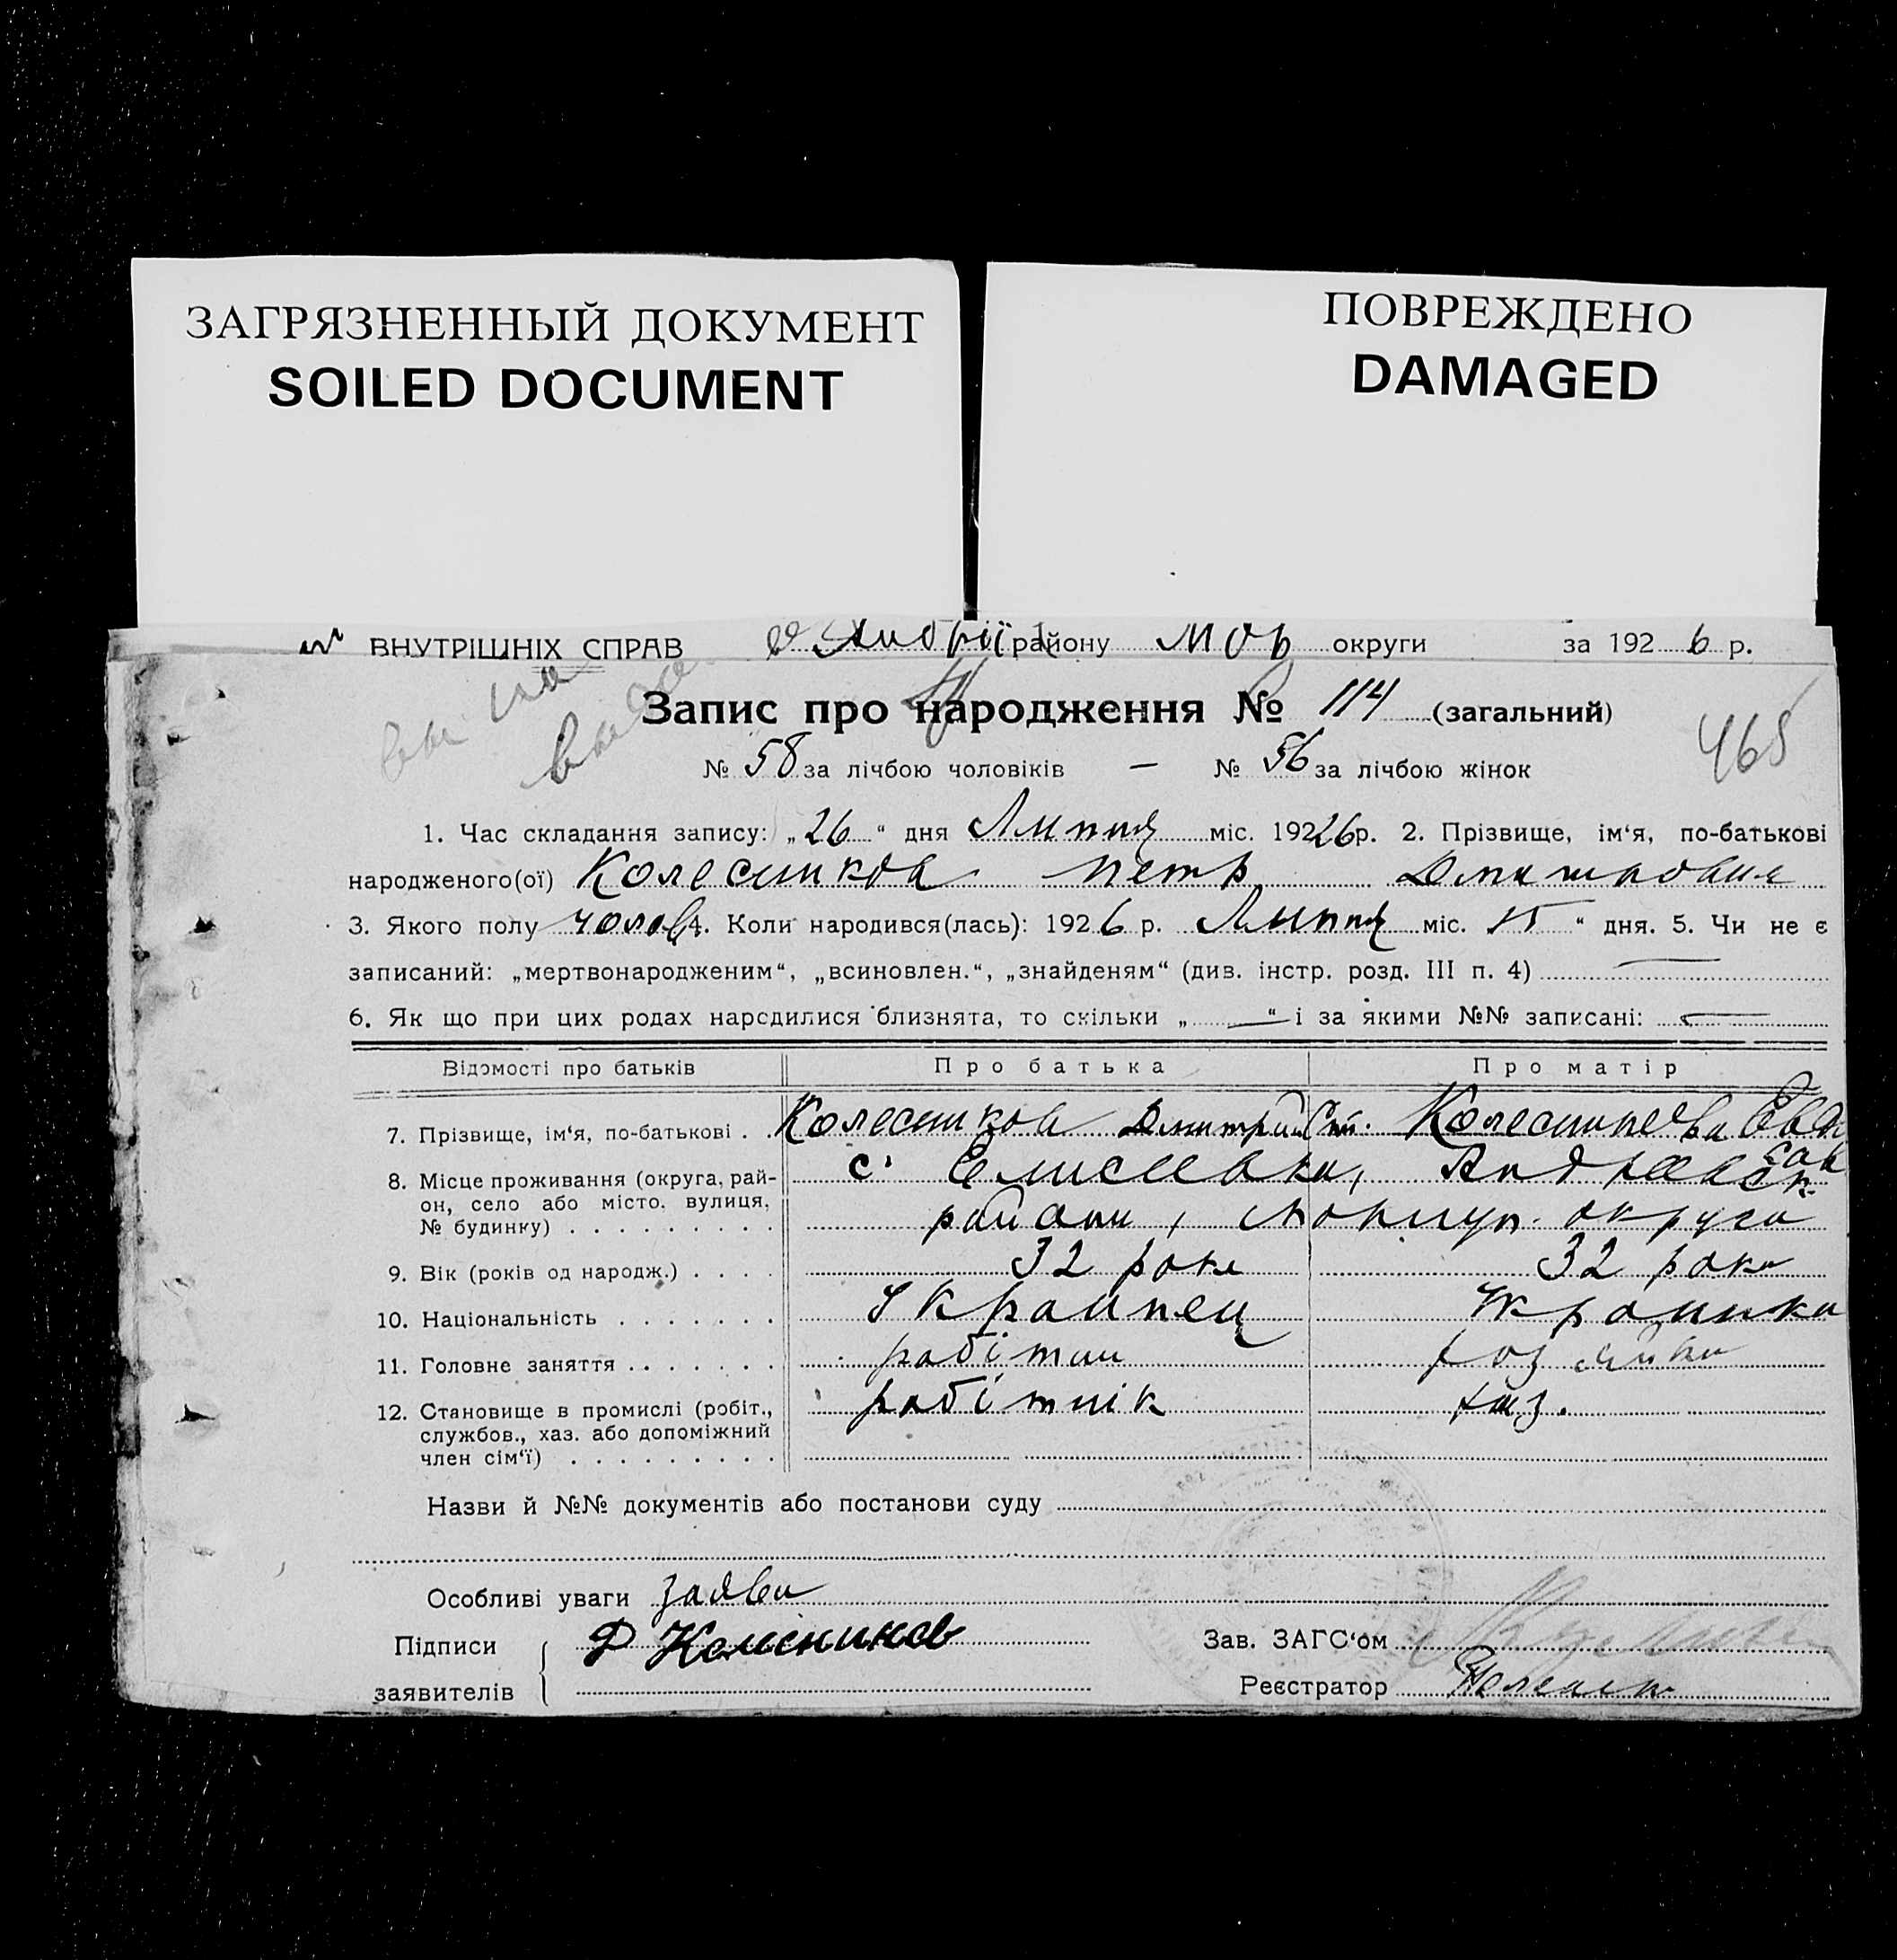 ЗАГРЯЗНЕННЫЙ ДОКУМЕНТ
SOILED DOCUMENT
ПОВРЕЖДЕНО
DAMAGED
ВНУТРІШНІХ СПРАВ району округи за 1926 р.
Запис про народження № 114 (загальний)
465
№ 58 за лічбою чоловіків — № 56 за лічбою жінок
1. Час складання запису: „26“ дня Липня міс. 19226р. 2. Прізвище, ім‘я, по-батькові
народженого(ої) Колесников Петр
3. Якого полу чолов 4. Коли народився(лась): 1926 р. Липня міс. 15“ дня. 5. Чи не є
записаний: „мертвонародженим“, „всиновлен.“, „знайденям“ (див. інстр. розд. III п. 4) —
6. Як що при цих родах народилися близнята, то скільки „—“ і за якими №№ записані: —
Відомості про батьків Про батька Про матір
7. Прізвище, ім‘я, по-батькові . . Колесников Дмитрий Колесникова
8. Місце проживання (округа, рай-
он, село або місто, вулиця,
№ будинку) . . . . . . . . .
с. Елисеевка,
району, округи
9. Вік (років од народж.) . . . . 32 роки 32 роки
10. Національність . . . . . . . Украинец Украинка
11. Головне заняття . . . . . . . робітник хозяйка
12. Становище в промислі (робіт., робітник хаз.
службов., хаз. або допоміжний
член сім‘ї) . . . . . . . . .
Назви й №№ документів або постанови суду
Особливі уваги заяви
Підписи
заявителів
Д Колесников
Зав. ЗАГС‘ом
Реєстратор